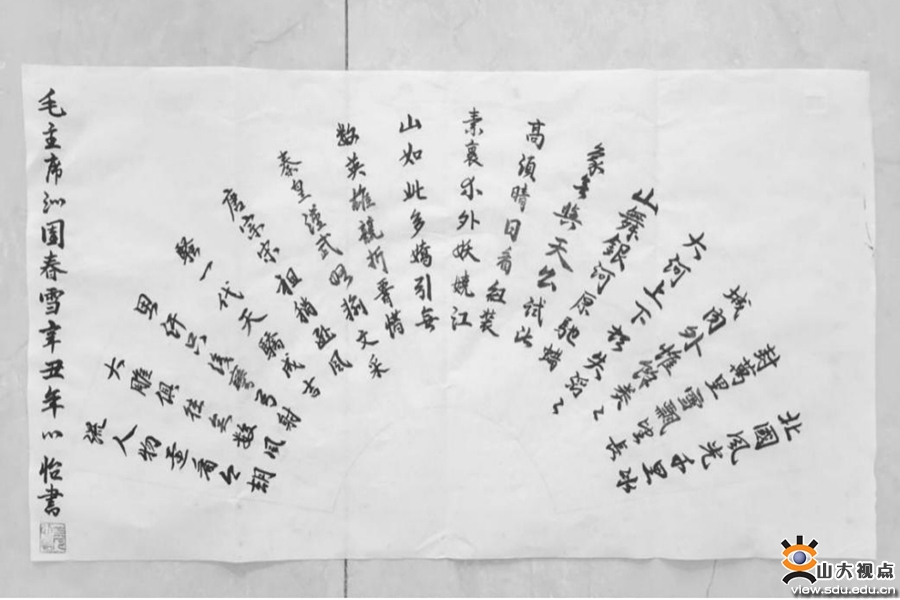 北國風光千里冰
封萬里雪飄望長
城内外惟餘莽〻
大河上下頓失滔〻
山舞銀河原馳蜡
象與天公試比
高須晴日看紅裝
素裹分外妖嬈江
山如此多嬌引無
数英雄競折腰惜
秦皇漢武略輸文采
唐宗宋祖稍遜風
騷一代天驕成吉
思汗只識彎弓射
大雕俱往矣数風
流人物還看今朝
毛主席沁園春雪辛丑年心怡書
山大视点
view.sdu.edu.cn